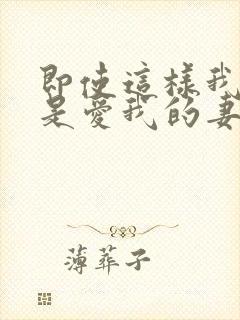 即使這樣我
是愛我的妻
薄葬子